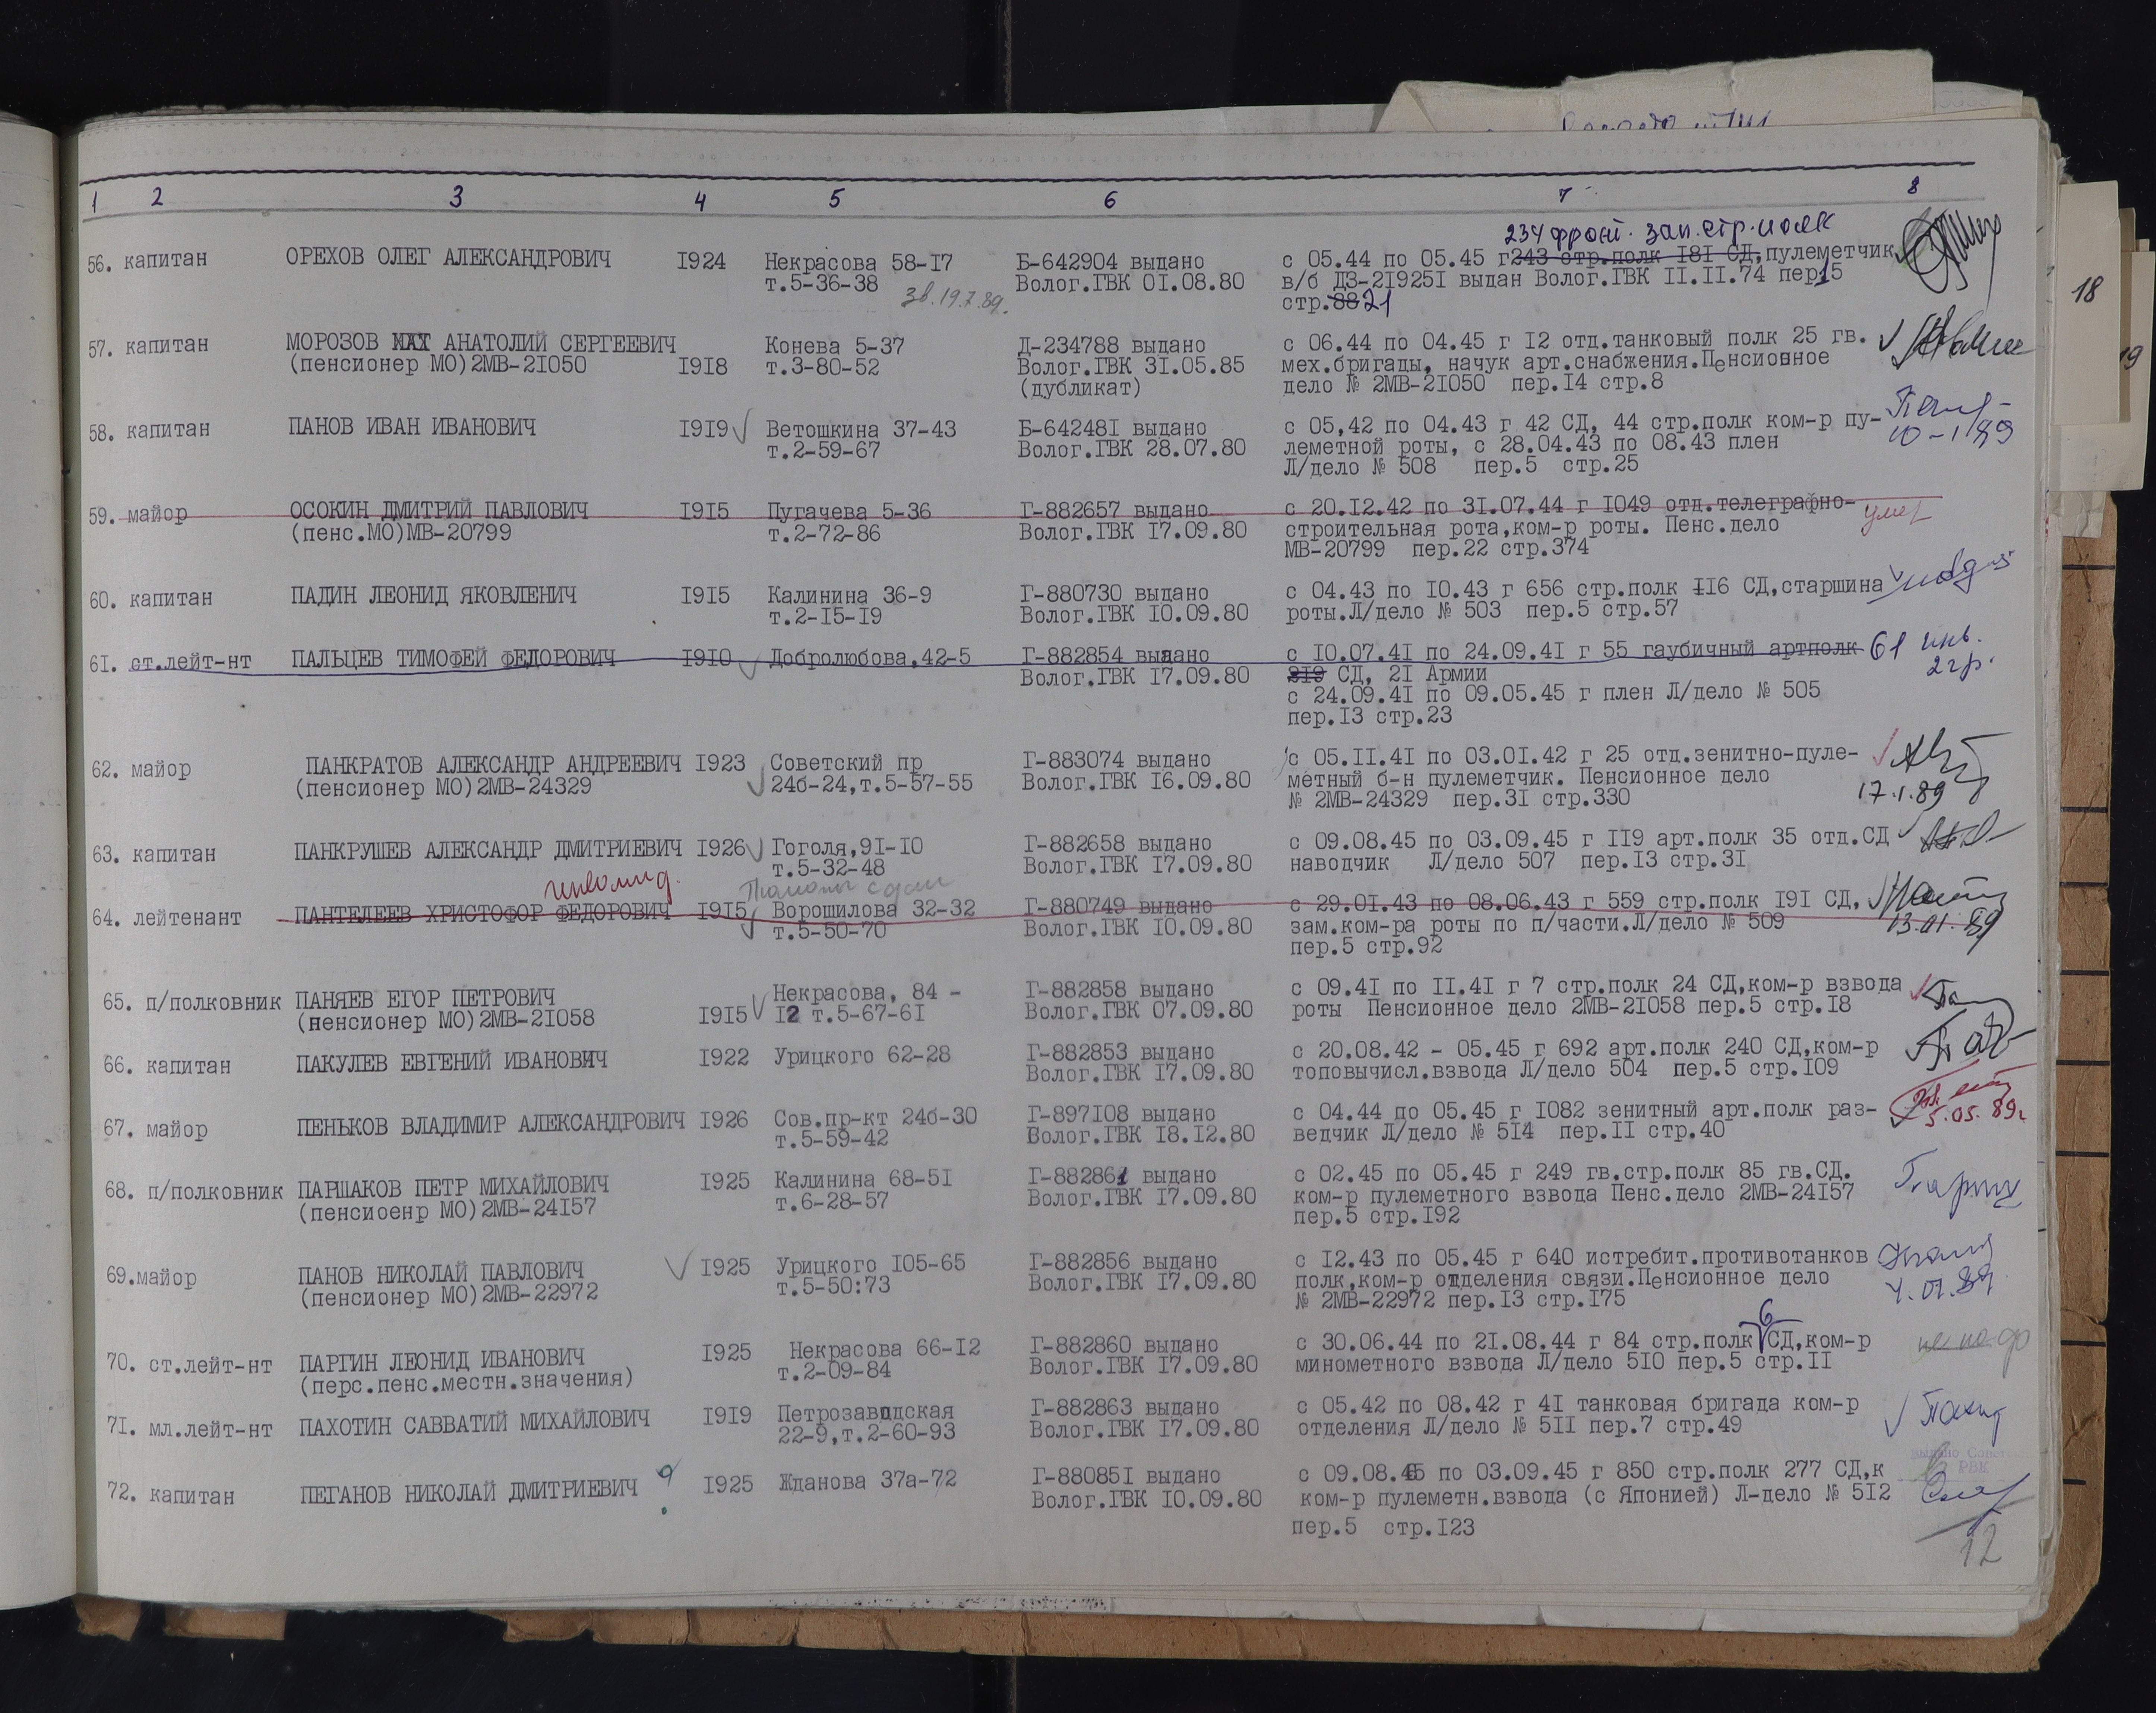 1 2 3 4 5 6 7 8
234 фронт. зап. стр. полк
56. капитан ОРЕХОВ ОЛЕГ АЛЕКСАНДРОВИЧ I924 Некрасова 58-I7 Б-642904 выдано с 05.44 по 05.45 г 243 стр.полк I8I СД, пулеметчик
т.5-36-38 Волог.ГВК 0I.08.80 в/б ДЗ-2I925I выдан Волог.ГВК II.II.74 пер15
зв. 19.7.89. стр.88 21
57. капитан МОРОЗОВ АНАТОЛИЙ СЕРГЕЕВИЧ Конева 5-37 Д-234788 выдано с 06.44 по 04.45 г I2 отд.танковый полк 25 гв.
(пенсионер МО)2МВ-2I050 I9I8 т.3-80-52 Волог.ГВК 3I.05.85 мех.бригады, начук арт.снабжения.Пенсионное
(дубликат) дело № 2МВ-2I050 пер.I4 стр.8
58. капитан ПАНОВ ИВАН ИВАНОВИЧ I9I9 Ветошкина 37-43 Б-64248I выдано с 05,42 по 04.43 г 42 СД, 44 стр.полк ком-р пу-
т.2-59-67 Волог.ГВК 28.07.80 леметной роты, с 28.04.43 по 08.43 плен 10-1/89
Л/дело № 508 пер.5 стр.25
59. майор ОСОКИН ДМИТРИЙ ПАВЛОВИЧ I9I5 Пугачева 5-36 Г-882657 выдано с 20.I2.42 по 3I.07.44 г I049 отд.телеграфно- умер
(пенс.МО)МВ-20799 т.2-72-86 Волог.ГВК I7.09.80 строительная рота,ком-р роты. Пенс.дело
МВ-20799 пер.22 стр.374
60. капитан ПАДИН ЛЕОНИД ЯКОВЛЕНИЧ I9I5 Калинина 36-9 Г-880730 выдано с 04.43 по I0.43 г 656 стр.полк II6 СД,старшина
т.2-I5-I9 Волог.ГВК I0.09.80 роты.Л/дело № 503 пер.5 стр.57
6I. ст.лейт-нт ПАЛЬЦЕВ ТИМОФЕЙ ФЕДОРОВИЧ I9I0 Добролюбова,42-5 Г-882854 выдано с I0.07.4I по 24.09.4I г 55 гаубичный артполк 61 инв.
Волог.ГВК I7.09.80 2I9 СД, 2I Армии 2 гр.
с 24.09.4I по 09.05.45 г плен Л/дело № 505
пер.I3 стр.23
62. майор ПАНКРАТОВ АЛЕКСАНДР АНДРЕЕВИЧ I923 Советский пр Г-883074 выдано с 05.II.4I по 03.0I.42 г 25 отд.зенитно-пуле-
(пенсионер МО)2МВ-24329 24б-24,т.5-57-55 Волог.ГВК I6.09.80 метный б-н пулеметчик. Пенсионное дело
№ 2МВ-24329 пер.3I стр.330 17.1.89
63. капитан ПАНКРУШЕВ АЛЕКСАНДР ДМИТРИЕВИЧ I926 Гоголя,9I-I0 Г-882658 выдано с 09.08.45 по 03.09.45 г II9 арт.полк 35 отд.СД
т.5-32-48 Волог.ГВК I7.09.80 наводчик Л/дело 507 пер.I3 стр.3I
инвалид.
64. лейтенант ПАНТЕЛЕЕВ ХРИСТОФОР ФЕДОРОВИЧ I9I5 Ворошилова 32-32 Г-880749 выдано с 29.0I.43 по 08.06.43 г 559 стр.полк I9I СД,
т.5-50-70 Волог.ГВК I0.09.80 зам.ком-ра роты по п/части.Л/дело № 509 13.01.89
пер.5 стр.92
65. п/полковник ПАНЯЕВ ЕГОР ПЕТРОВИЧ Некрасова, 84 - Г-882858 выдано с 09.4I по II.4I г 7 стр.полк 24 СД,ком-р взвода
(пенсионер МО)2МВ-2I058 I9I5 I2 т.5-67-6I Волог.ГВК 07.09.80 роты Пенсионное дело 2МВ-2I058 пер.5 стр.I8
66. капитан ПАКУЛЕВ ЕВГЕНИЙ ИВАНОВИЧ I922 Урицкого 62-28 Г-882853 выдано с 20.08.42 - 05.45 г 692 арт.полк 240 СД,ком-р
Волог.ГВК I7.09.80 топовычисл.взвода Л/дело 504 пер.5 стр.I09
67. майор ПЕНЬКОВ ВЛАДИМИР АЛЕКСАНДРОВИЧ I926 Сов.пр-кт 24б-30 Г-897I08 выдано с 04.44 до 05.45 г I082 зенитный арт.полк раз- 5.05.89г
т.5-59-42 Волог.ГВК I8.I2.80 ведчик Л/дело № 5I4 пер.II стр.40
68. п/полковник ПАРШАКОВ ПЕТР МИХАЙЛОВИЧ I925 Калинина 68-5I Г-882861 выдано с 02.45 по 05.45 г 249 гв.стр.полк 85 гв.СД.
(пенсиоенр МО)2МВ-24I57 т.6-28-57 Волог.ГВК I7.09.80 ком-р пулеметного взвода Пенс.дело 2МВ-24I57
пер.5 стр.I92
69.майор ПАНОВ НИКОЛАЙ ПАВЛОВИЧ I925 Урицкого I05-65 Г-882856 выдано с I2.43 по 05.45 г 640 истребит.противотанков
(пенсионер МО)2МВ-22972 т.5-50:73 Волог.ГВК I7.09.80 полк,ком-р отделения связи.Пенсионное дело
№ 2МВ-22972 пер.I3 стр.I75
6
70. ст.лейт-нт ПАРГИН ЛЕОНИД ИВАНОВИЧ I925 Некрасова 66-I2 Г-882860 выдано с 30.06.44 по 2I.08.44 г 84 стр.полк СД,ком-р не надо
(перс.пенс.местн.значения) т.2-09-84 Волог.ГВК I7.09.80 минометного взвода Л/дело 5I0 пер.5 стр.II
7I. мл.лейт-нт ПАХОТИН САВВАТИЙ МИХАЙЛОВИЧ I9I9 Петрозаводская Г-882863 выдано с 05.42 по 08.42 г 4I танковая бригада ком-р
22-9,т.2-60-93 Волог.ГВК I7.09.80 отделения Л/дело № 5II пер.7 стр.49
72. капитан ПЕГАНОВ НИКОЛАЙ ДМИТРИЕВИЧ I925 Жданова 37а-72 Г-88085I выдано с 09.08.45 по 03.09.45 г 850 стр.полк 277 СД,к
Волог.ГВК I0.09.80 ком-р пулеметн.взвода (с Японией) Л-дело № 5I2
пер.5 стр.I23
12
18
19